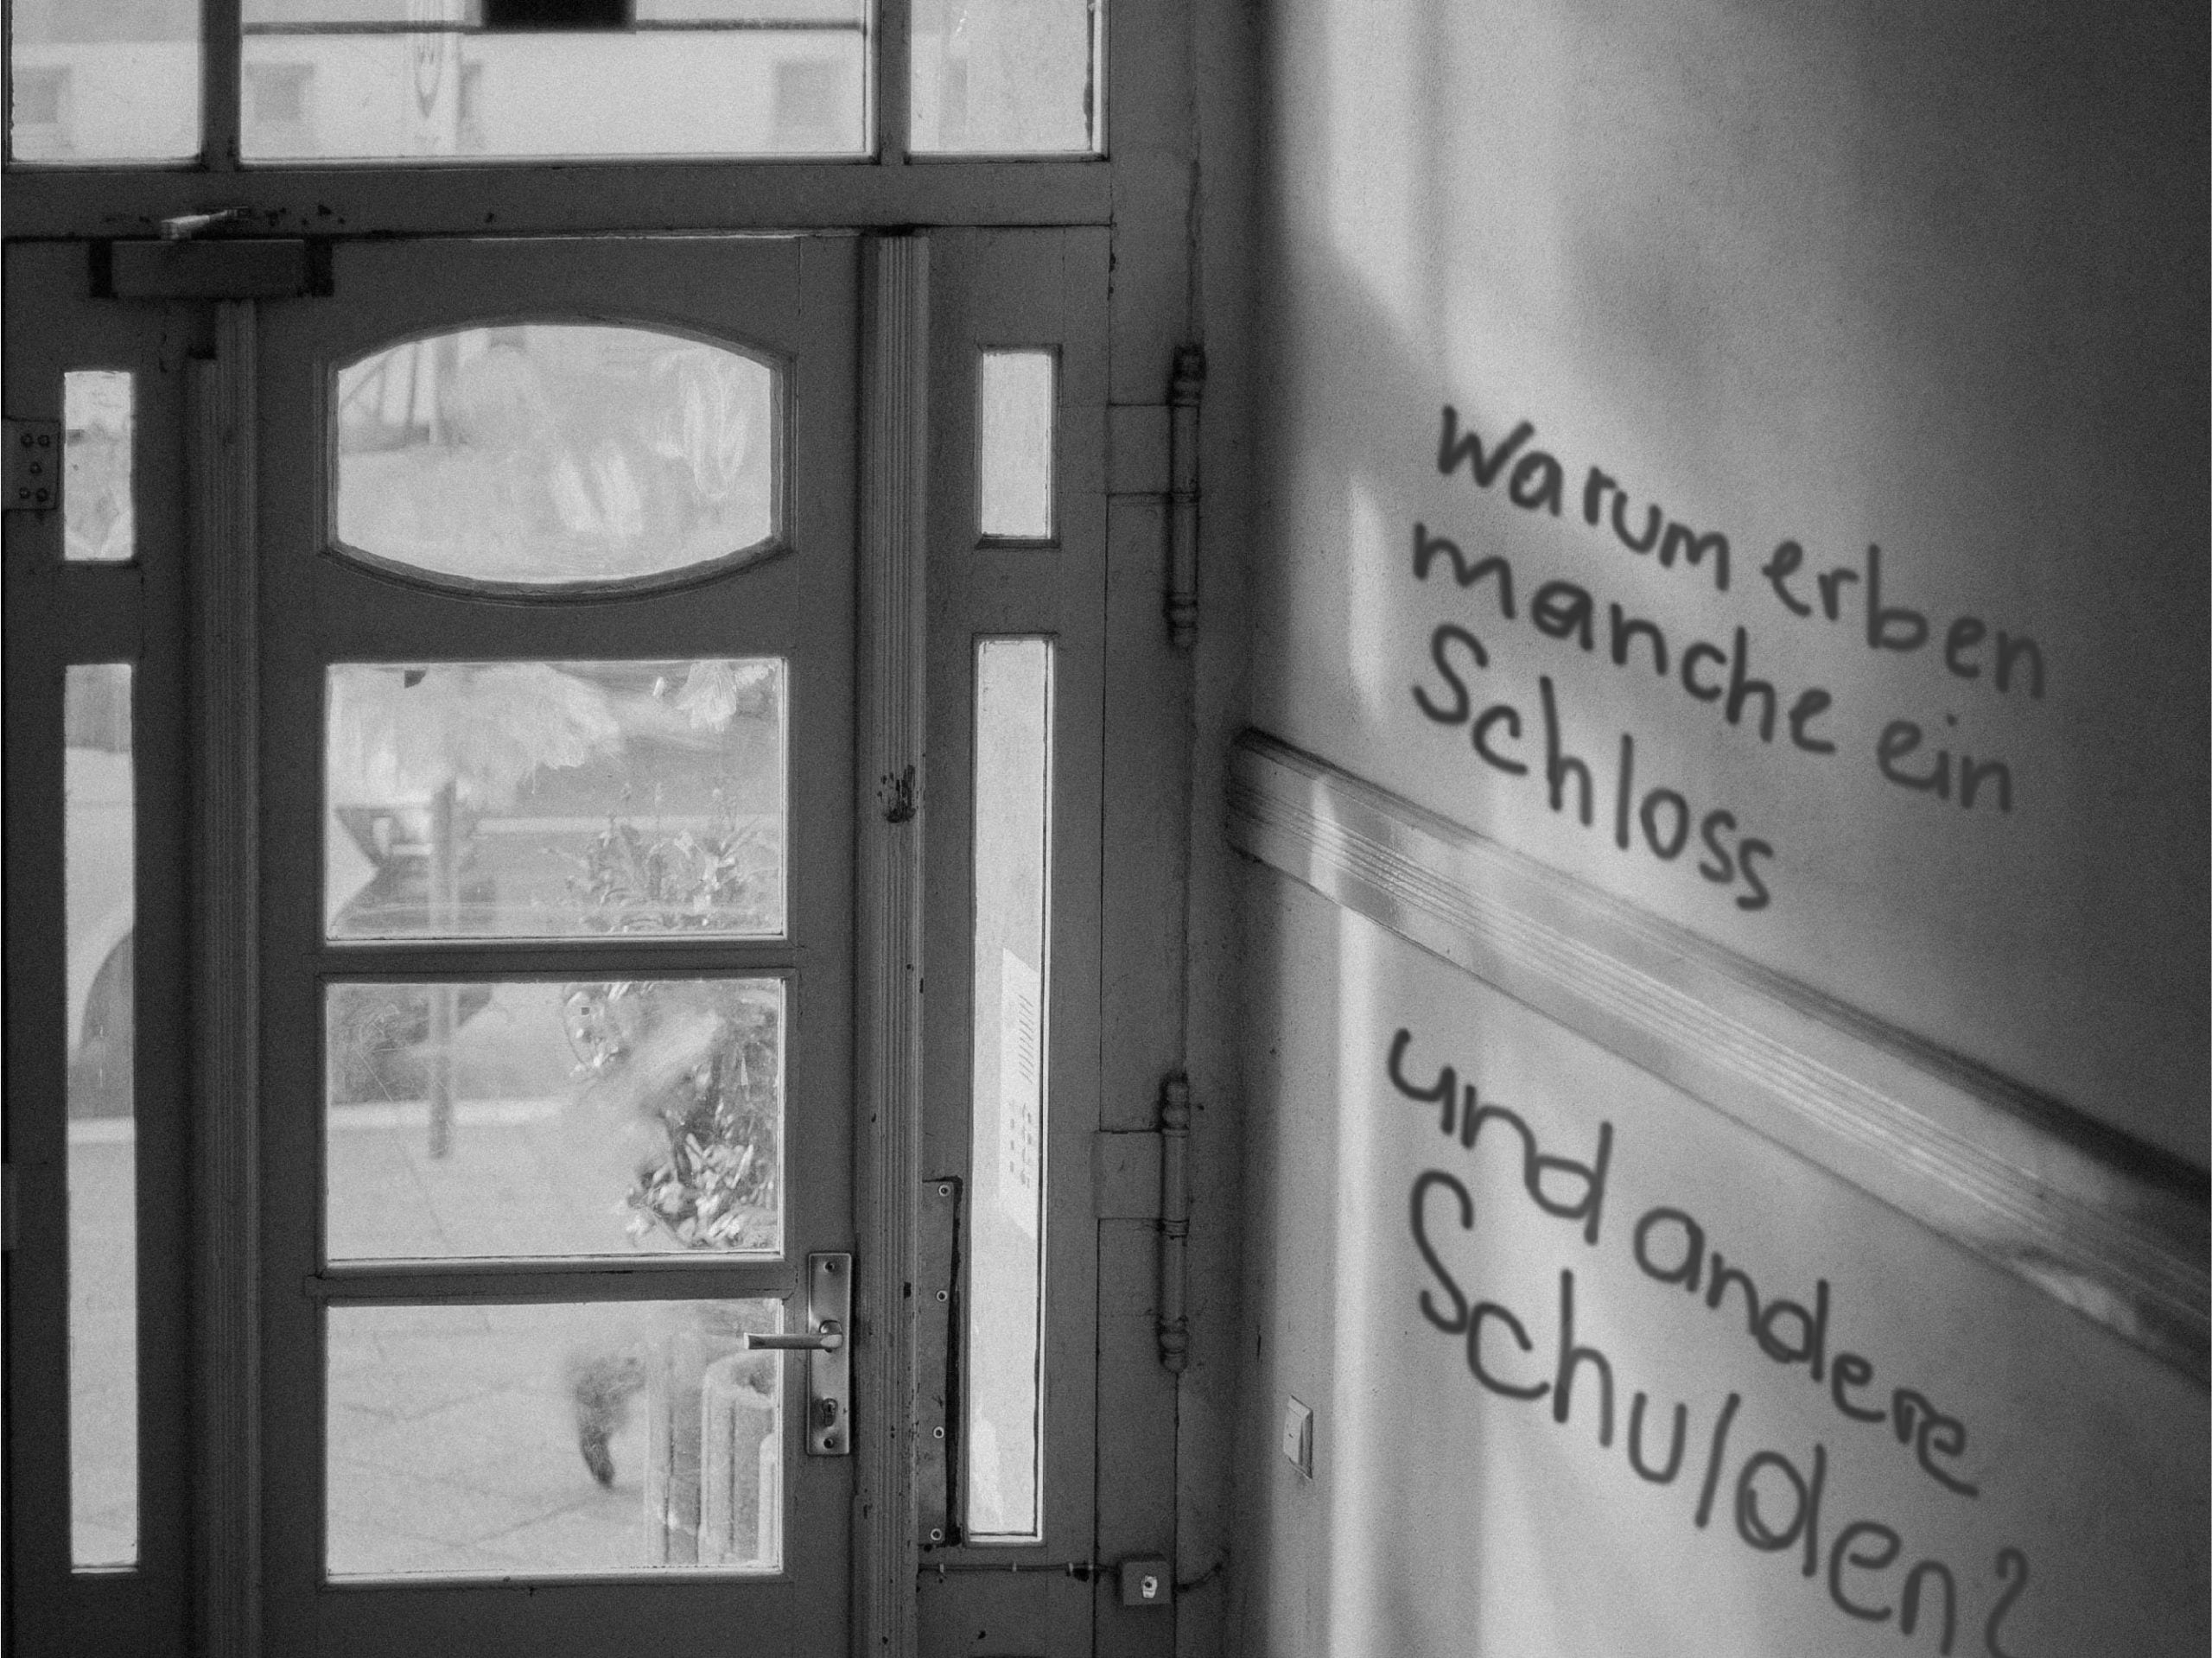 Warum erben
manche ein
Schloss
und andere
Schulden?